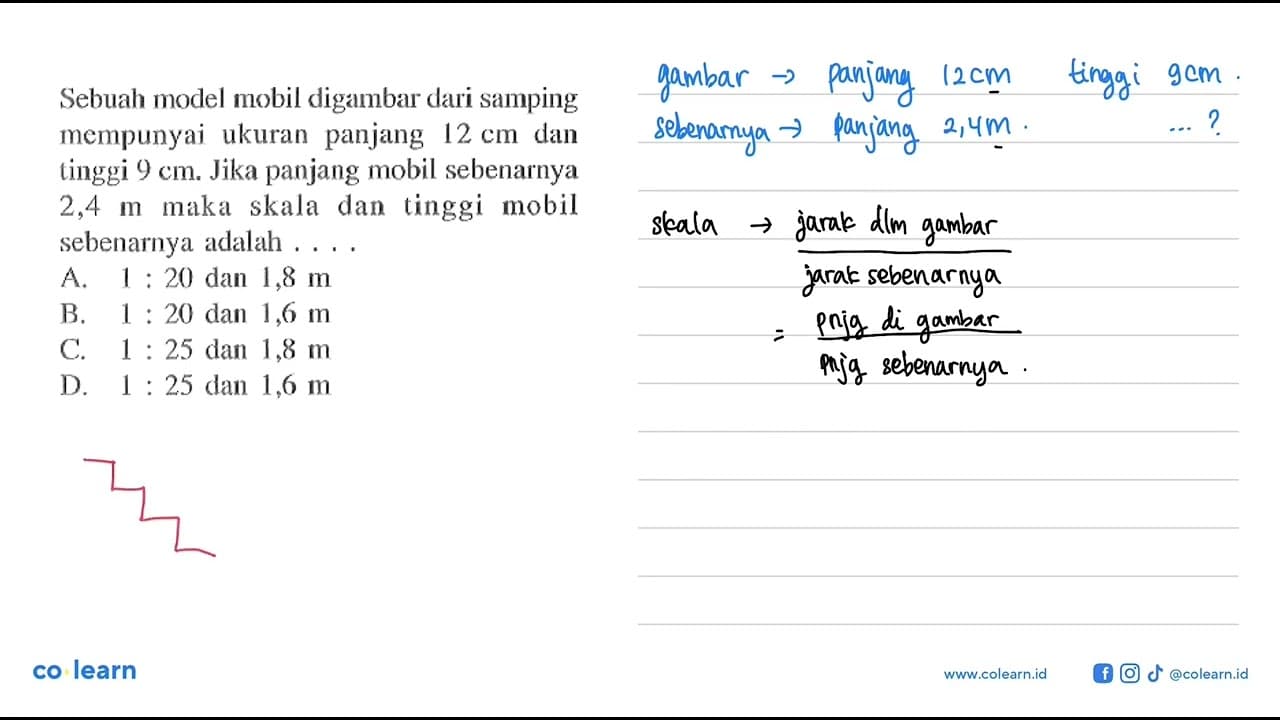 Sebuah model mobil digambar dari samping
mempunyai ukuran panjang 12 cm dan
tinggi 9 cm. Jika panjang mobil sebenarnya
2,4 m maka skala dan tinggi mobil
sebenarnya adalah . . . .
A. 1 : 20 dan 1,8 m
B. 1 : 20 dan 1,6 m
C. 1 : 25 dan 1,8 m
D. 1 : 25 dan 1,6 m
gambar → panjang 12cm tinggi 9cm.
sebenarnya → panjang 2,4m. ... ?
skala → jarak dlm gambar
jarak sebenarnya
= pnjg di gambar
pnjg sebenarnya.
co learn
www.colearn.id
@colearn.id